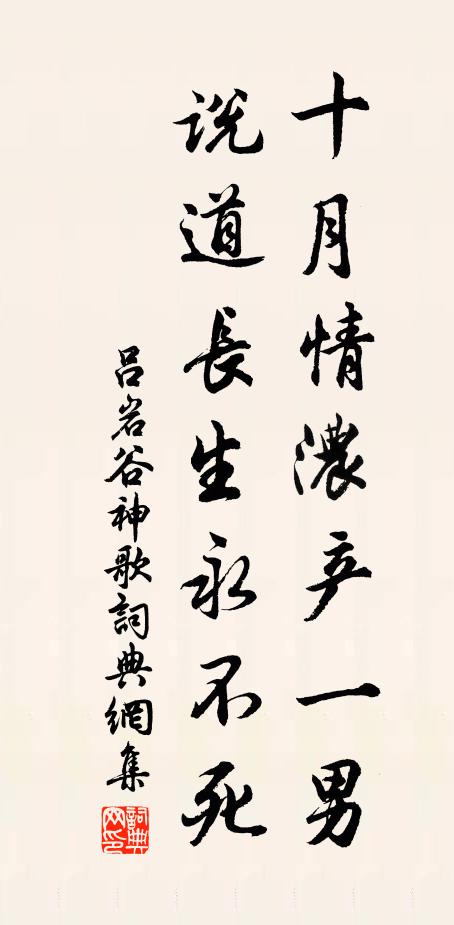 十月情濃产一男
説道長生永不死
吕岩谷神歌詞典網集
詞典网印